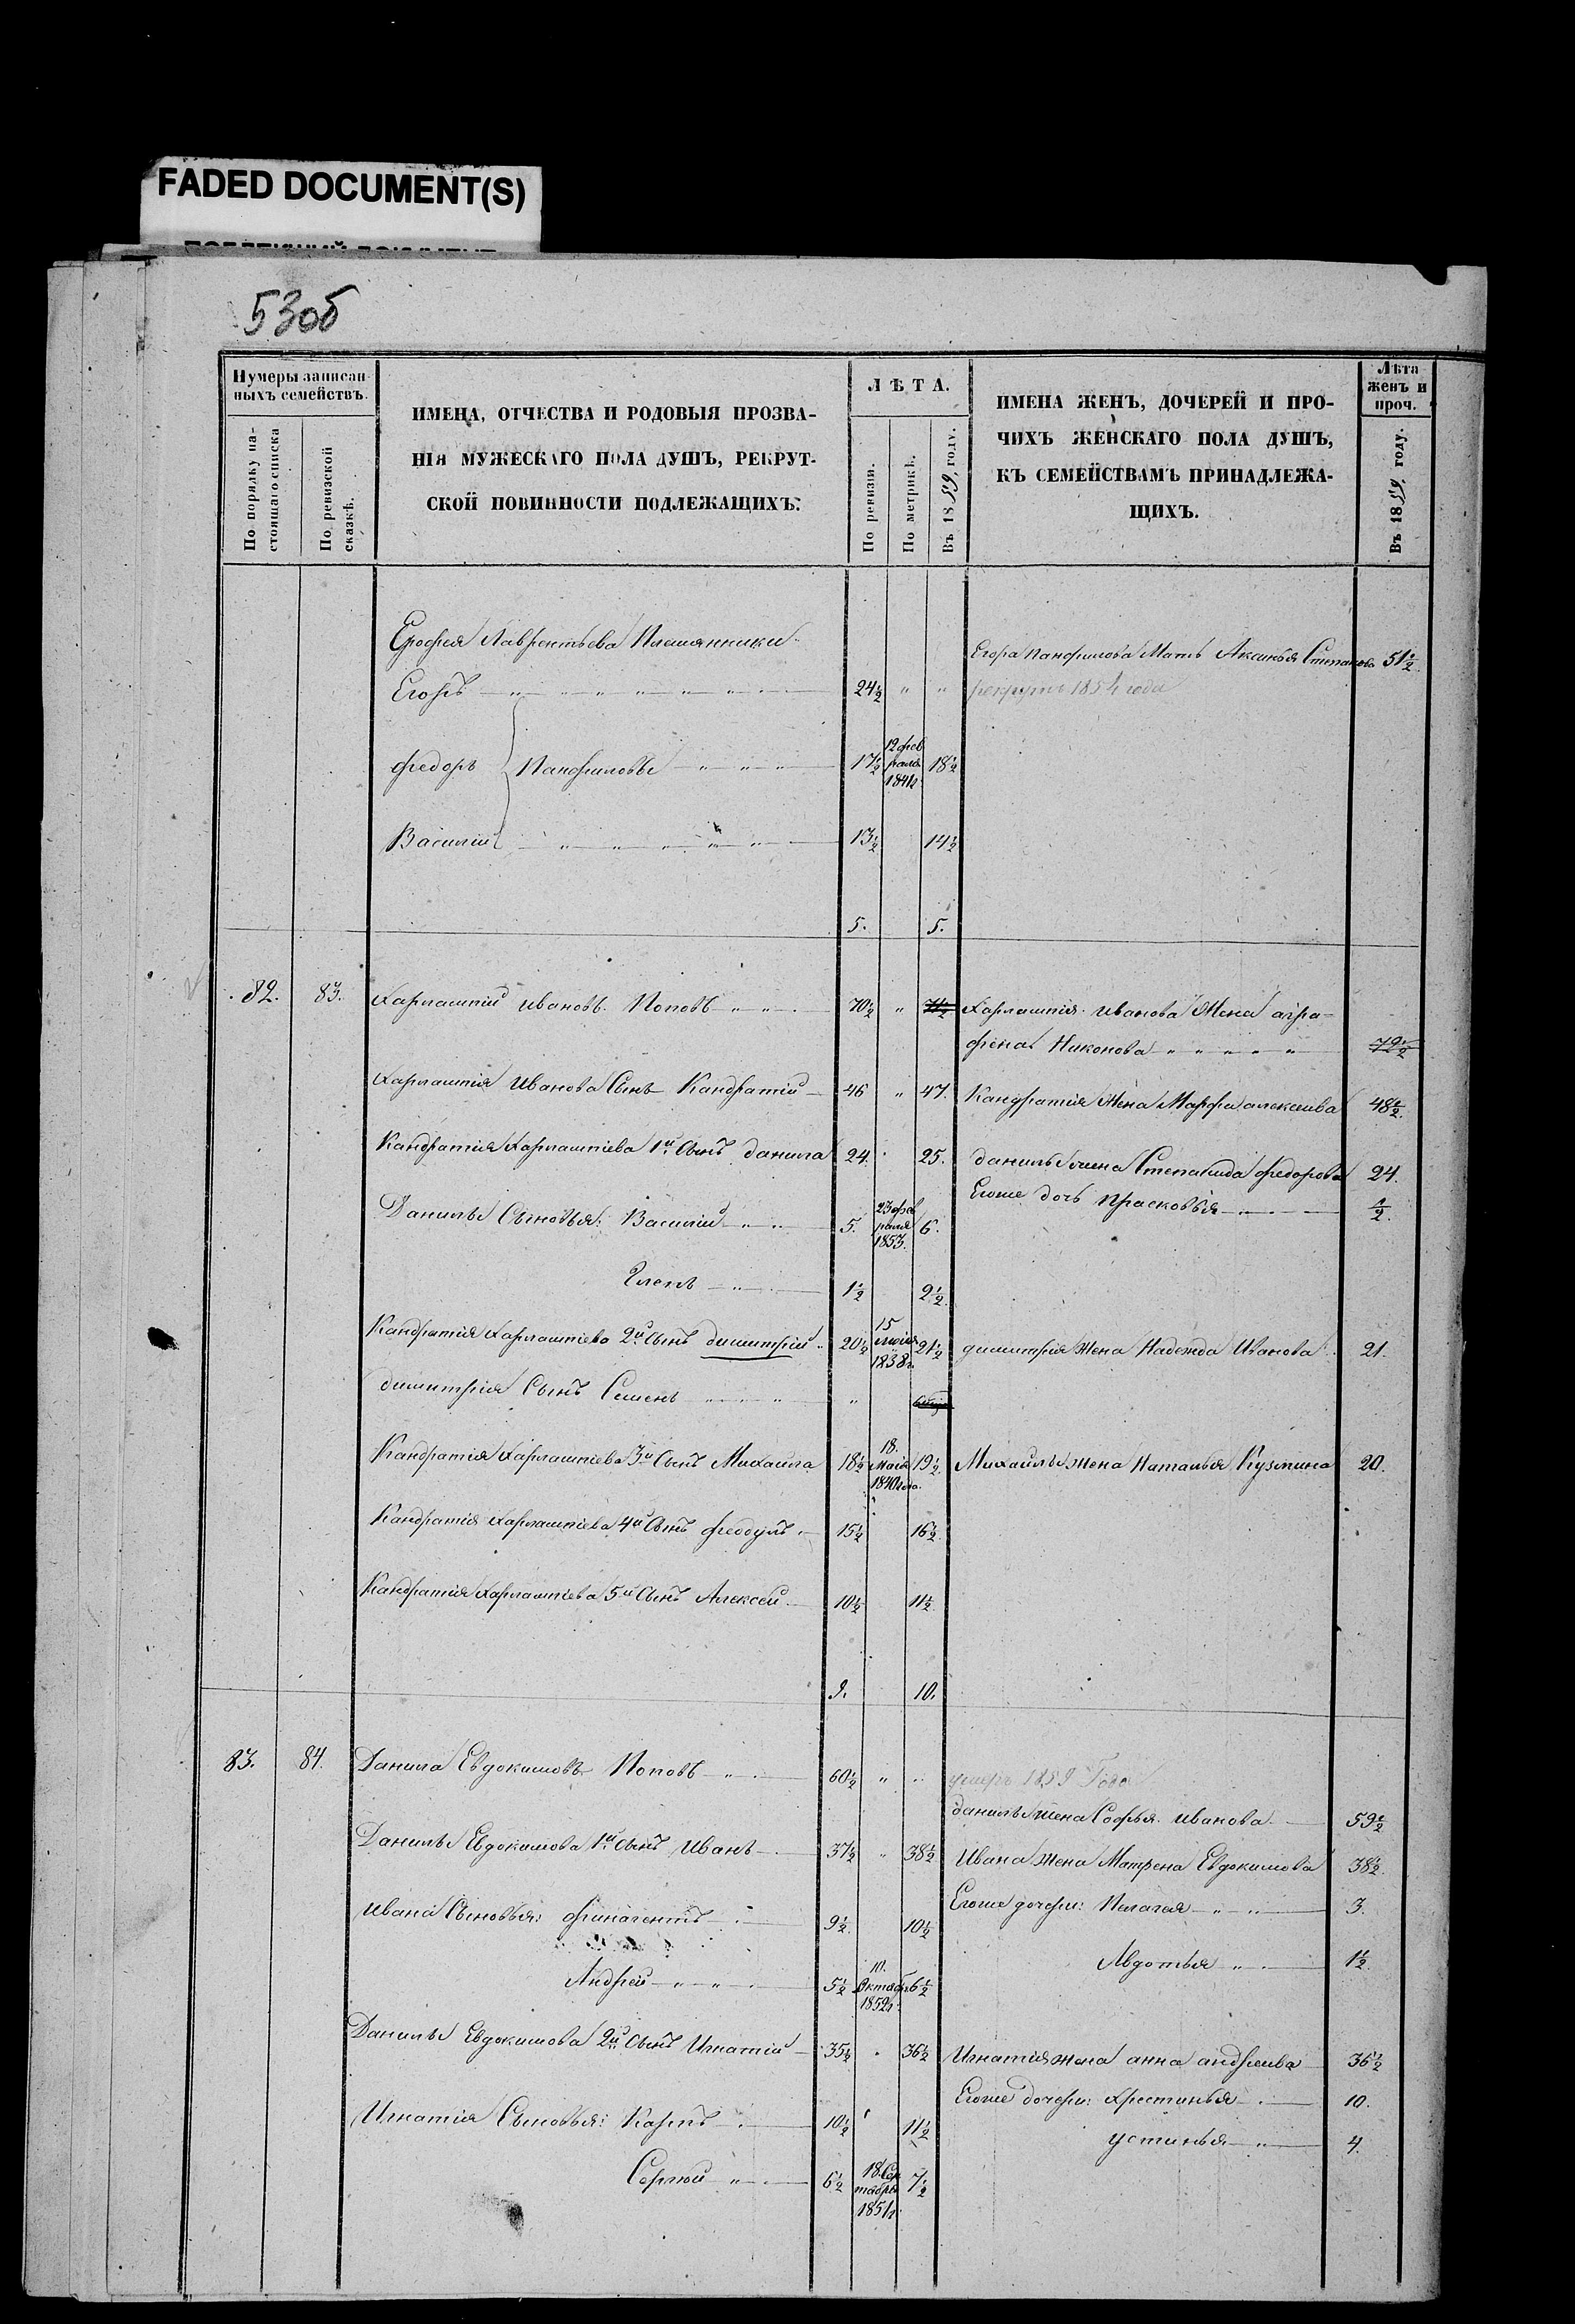 FADED DOCUMENT(S)
53об
Нумеры записан-
ныхъ семействъ.
По порядку на-
стоящаго списка
По ревизской
сказкѣ.
ИМЕНА, ОТЧЕСТВА И РОДОВЫЯ ПРОЗВА-
НІЯ МУЖЕСКАГО ПОЛА ДУШЪ, РЕКРУТ-
СКОЙ ПОВИННОСТИ ПОДЛЕЖАЩИХЪ:
ЛѢТА.
По ревизіи.
По метрикѣ.
Въ 1859, году.
ИМЕНА ЖЕНЪ, ДОЧЕРЕЙ И ПРО-
ЧИХЪ ЖЕНСКАГО ПОЛА ДУШЪ,
КЪ СЕМЕЙСТВАМЪ ПРИНАДЛЕЖА-
ЩИХЪ.
Лѣта
женъ и
проч.
Въ 1859, году.
Ерофея Лаврентьева Племянники
Егора Панфилова Мать Аксинья Степанова 51½
Егоръ 24½ " " рекрутъ 1854 года
Федоръ Панфиловы 17½ 12 фев раля 1841г 18½
Василій 13½ 14½
5. 5.
82. 83. Харлампій Ивановъ Поповъ 70½ " 71½ Харлампія Иванова Жена агра-
фена Никонова 72½
Харлампія Иванова Сынъ Кандратій 46 " 47. Кандратія Жена Марфа алексеива 48½
Кандратия Харлампіева 1й Сынъ данила 24. 25. данилы жена Степанида федорова 24.
Егоже дочь прасковья ½
Данилы Сыновья: Василий 5. 23 фев раля 1853. 6.
Глепъ 1½ 2½
Кандратія Харлампіева 2й Сынъ димитрій 20½ 15 1838г. 21½ димитрія Жена Надежда Иванова 21.
димитрія Сынъ Семенъ "
Кандратія Харлампіева 3й Сынъ Михаила 18½ 18. Мая 1840 года. 19½ Михаилы жена Наталья Кузмина 20.
Кандратія Харлампіева 4й Сынъ феодулъ 15½ 16½
Кандратія Харлампіева 5й Сынъ Алексей 10½ 11½
9. 10.
83. 84. Данила Евдокимовъ Поповъ 60½ " " умеръ 1859 Года
данилы жена Софья Иванова 59½
Данилы Евдокимова 1й Сынъ Иванъ 37½ " 38½ Ивана жена Матрена Евдокимова 38½
Ивана Сыновья: финагентъ 9½ 10½ Егоже дочери: Пелагея 3.
Авдотья 1½
Андрей 5½ 10. Октябр 1852г 6½
Данилы Евдокимова 2й Сынъ Игнатій 35½ 36½ Игнатія жена анна андреива 36½
Егоже дочери: Хрестинья 10.
Игнатія Сыновья: Карпъ 10½ 11½
устинья 4.
Сергий 6½ 18. Сен тября 1851г 7½